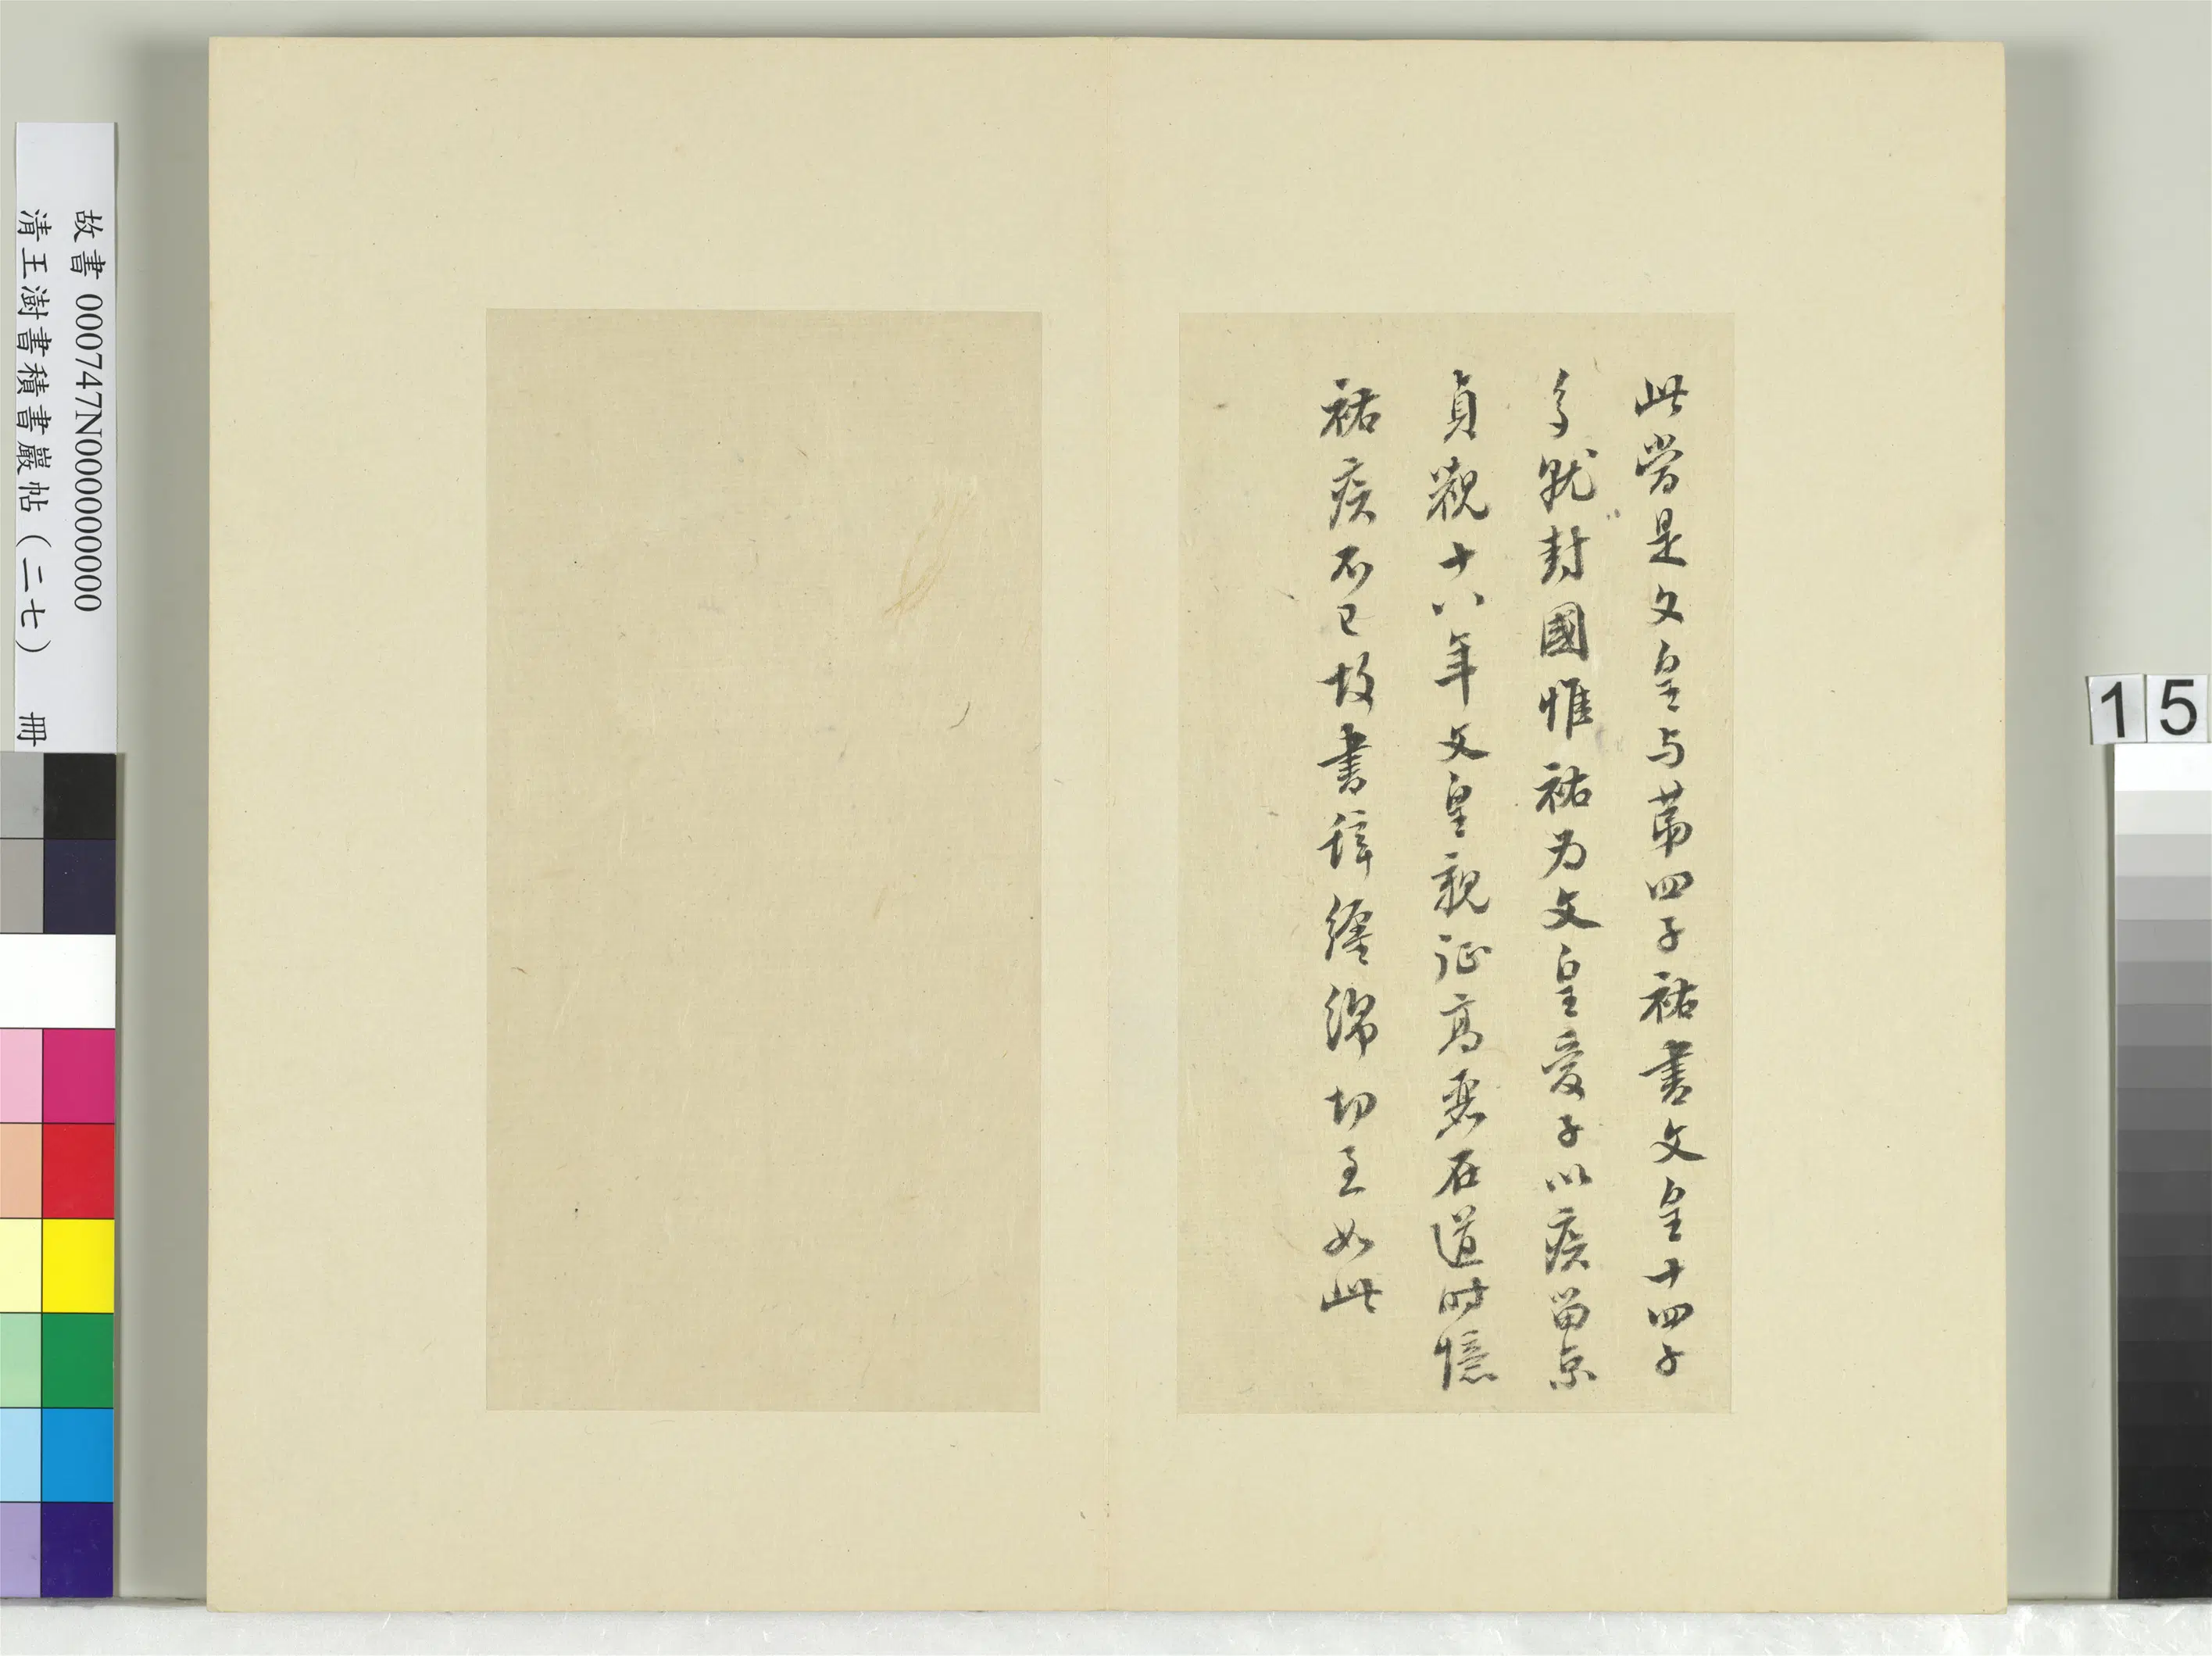 此當是文皇与苐四子祐書文皇十四子
多就封國惟祐为文皇愛子以疾留京
貞觀十八年文皇親征高麗在道时憶
祐疾不已故書辞纏綿切至如此
故書 000747N000000000
清王澍書積書巖帖（二七） 冊
15